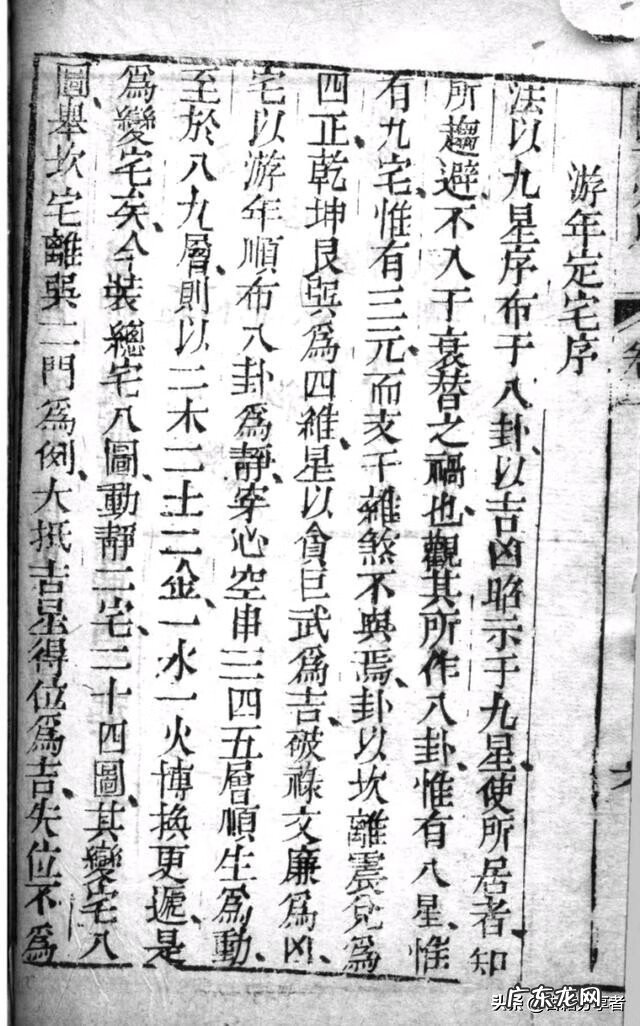 游年定宅序
法以九星序布于八卦以吉凶昭示于九星使所居者知
所趨避不入于衰替之禍也觀其所作八卦惟有八星惟
有九宅惟有三元而支干雜煞不與焉卦以坎離震兌為
四正乾坤艮巽為四維星以貪巨武為吉破祿文廉為凶
宅以游年順布八卦為靜穿心空串三四五層順生為動
至於八九層則以二木二土二金一水一火博換更遞是
為變宅矣今裝總宅八圖動靜二宅二十四圖其變宅八
圖舉坎宅離巽二門為例大抵吉星得位為吉失位不為
广东龙网